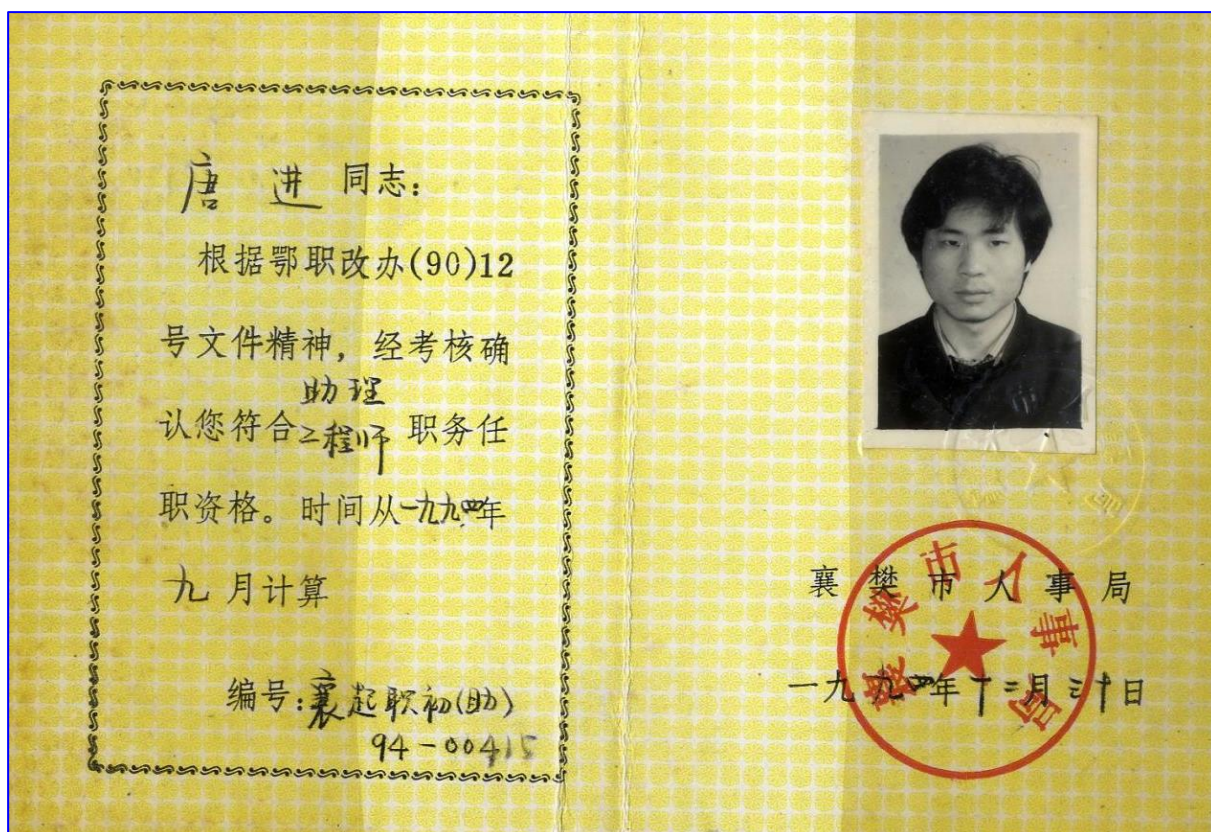 唐 进 同志：
根据鄂职改办(90)12
号文件精神，经考核确
助理
认您符合工程师 职务任
职资格。时间从一九九四年
九 月计算
编号：襄起职初(助)
94-00415
襄樊市人事局
襄樊市人事局
一九九四年十二月三十日